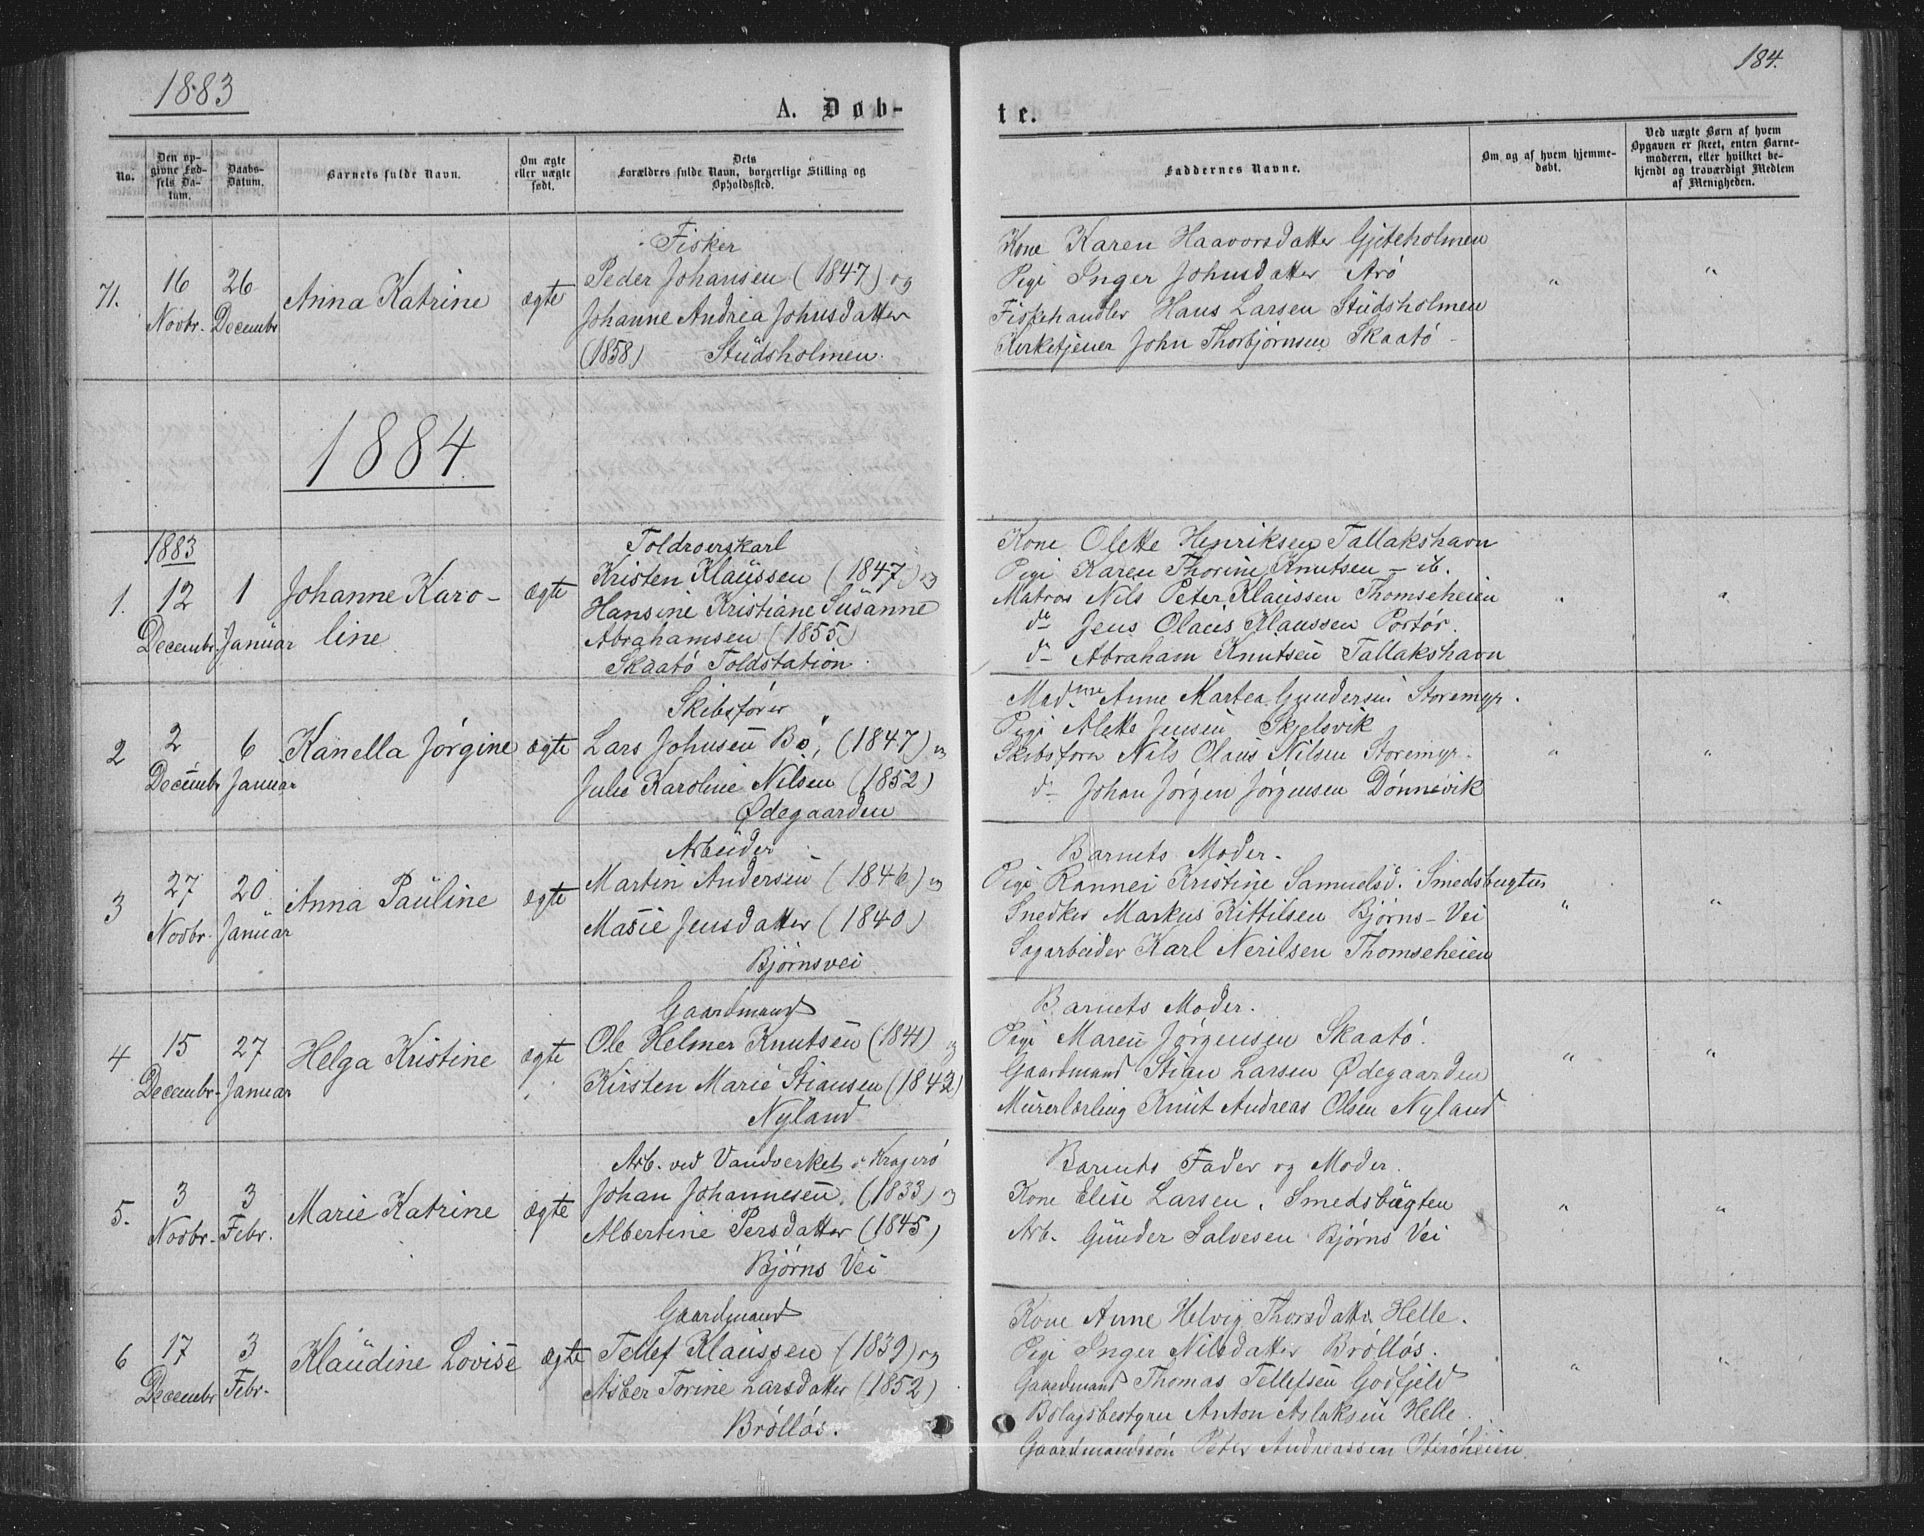 1883
184.
A. Døb-
te.
No.
Den op-
givne Fød-
sels Da-
tum.
Daabs-
Datum.
Barnets fulde Navn.
Om ægte
eller uægte
født.
Dets
Forældres fulde Navn, borgerlige Stilling og
Opholdssted.
Faddernes Navne.
Om og af hvem hjemme-
døbt.
Ved uægte Børn af hvem
Opgaven er skeet, enten Barne-
moderen, eller hvilket be-
kjendt og troværdigt Medlem
af Menigheden.
71.
16
Novbr.
26
Decembr
Anna Katrine
ægte
Fisker
Peder Johansen (1847) og
Johanne Andrea Johnsdatter
(1858) Studsholmen.
Kone Karen Haavorsdatter Gjeteholmen
Pige Inger Johnsdatter Arö
Fiskehandler Hans Larsen Studsholmen
Kirketjener John Thorbjørnsen Skaatö
" "
1884.
1.
1883
12
Decembr.
1
Januar
Johanne Karo-
line
ægte
Toldroerskarl
Kristen Klaussen (1847) og
Hansine Kristiane Susanne
Abrahamsen (1855)
Skaatö Toldstation.
Kone Olette Henriksen Tallakshavn
Pige Karen Thorine Knutsen - ib.
Matros Nils Peter Klaussen Thomseheien
do Jens Olaus Klaussen Portör.
d- Abraham Knutsen Tallakshavn
" "
2
2
Decembr
6
Januar
Kanella Jörgine
ægte
Skibsfører
Lars Johnsen Bö, (1847) og
Julie Karoline Nilsen (1852)
Ødegaarden
Madme Anne Martea Gundersen Storemyr.
Pige Alette Jensen Skjelsvik
Skibsfører Nils Olaus Nilsen Storemyr.
d- Johan Jörgen Jörgensen Dönnevik
" "
3
27
Novbr.
20
Januar
Anna Pauline
ægte
Arbeider
Martin Andersen (1846) og
Masie Jensdatter (1840)
Bjørnsvei
Barnets Moder.
Pige Rannei Kristine Samuelsd. Smedsbugten
Snedker Markus Kittilsen Bjørns-Vei
Sagarbeider Karl Nerilsen Thomseheien
" "
4
15
Decembr.
27
Januar
Helga Kristine
ægte
Gaardmand
Ole Helmer Knutsen (1841) og
Kirsten Marie Stiansen (1842)
Nyland
Barnets Moder.
Pige Maren Jörgensen Skaatö.
Gaardmand Stian Larsen Ødegaarden
Murerlærling Knut Andreas Olsen Nyland
" "
5.
3
Novbr.
3
Febr.
Marie Katrine
ægte
Arb. ved Vandverket i Kragerö
Johan Johannesen (1833) og
Albertine Persdatter (1845)
Bjørns Vei
Barnets Fader og Moder.
Kone Elise Larsen. Smedsbugten
Arb. Gunder Salvesen Bjørns Vei
" "
6
17
Decembr
3
Febr.
Klaudine Lovise
ægte
Gaardmand
Tellef Klaussen (1839) og
Asber Torine Larsdatter (1852)
Brölløs.
Kone Anne Helvig Thorsdatter Helle.
Pige Inger Nilsdatter Bröllös.
Gaardmand Thomas Tellefsen Godfjeld
Bolagsbestyrer Anton Aslaksen Helle.
Gaardmandssön Peter Andreassen Oteröheien
" "